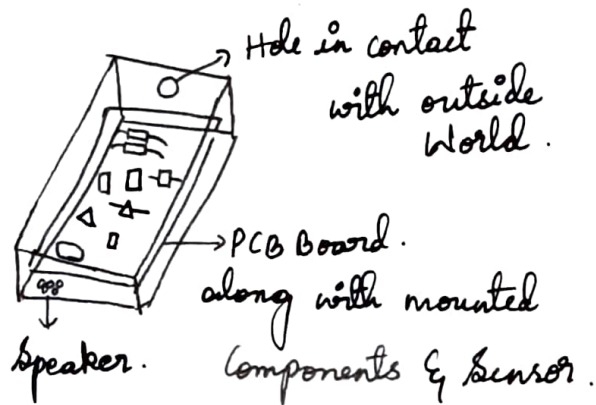 Hole in contact
with outside
World.
PCB Board.
along with mounted
Components & Sensor.
Speaker.